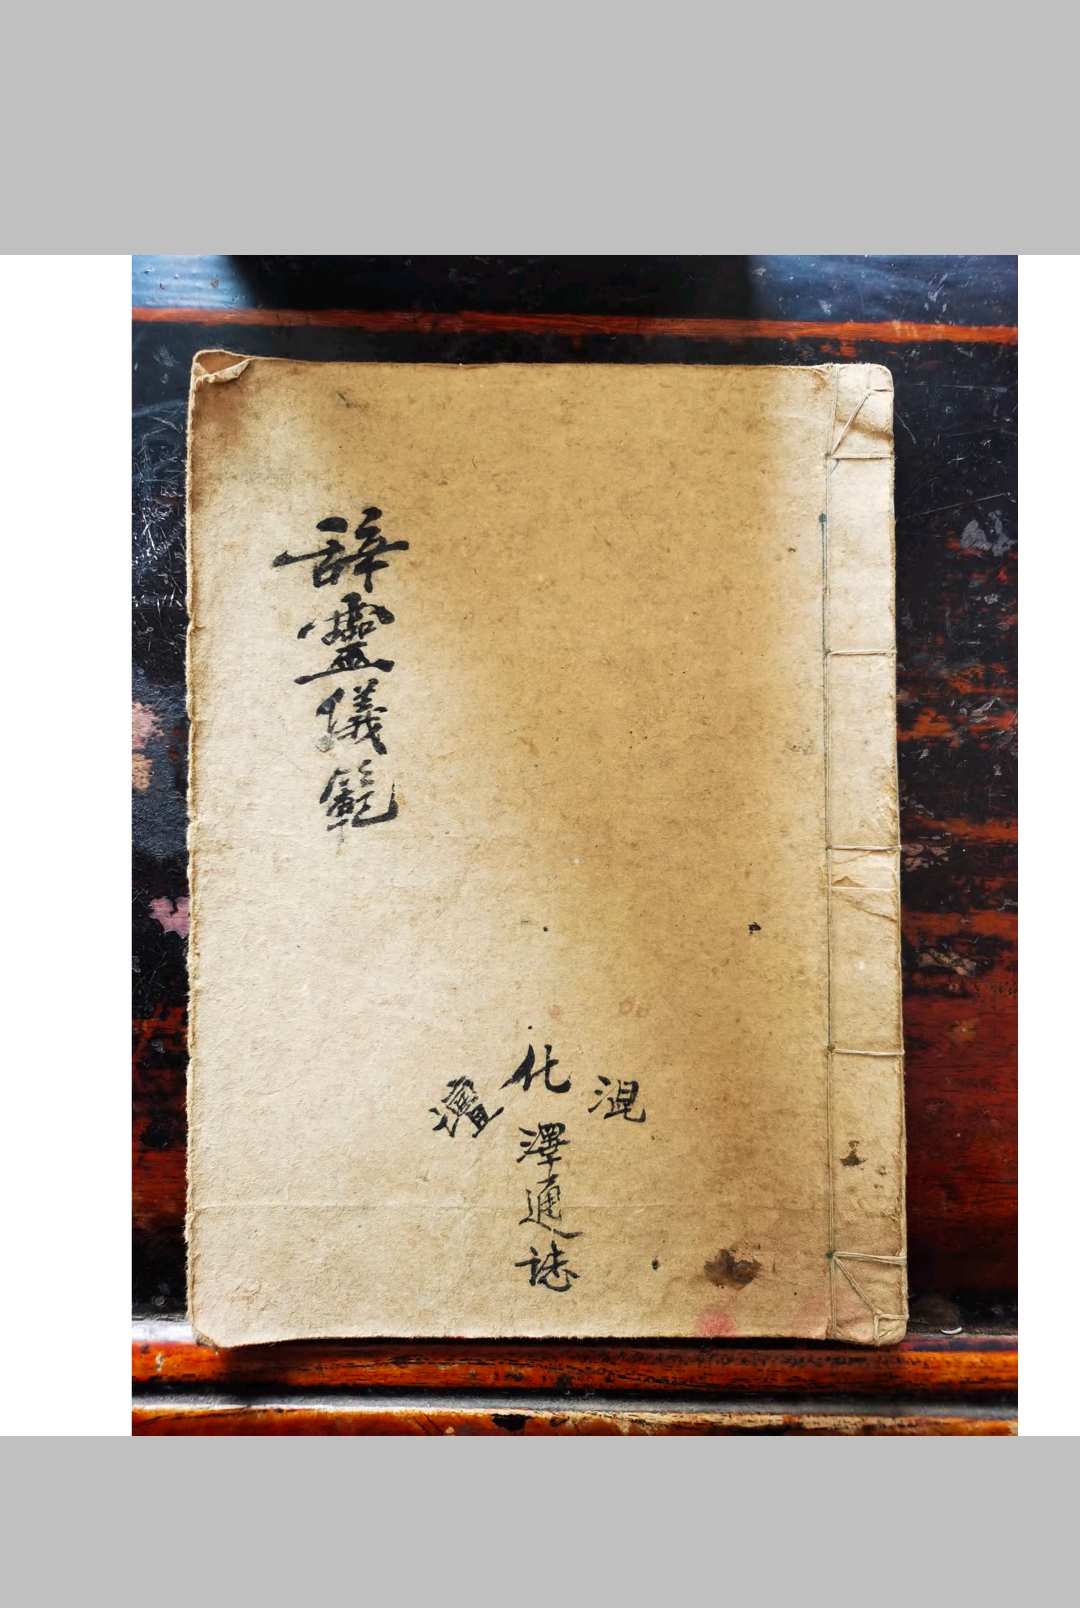 辞靈儀範
化澤通誌